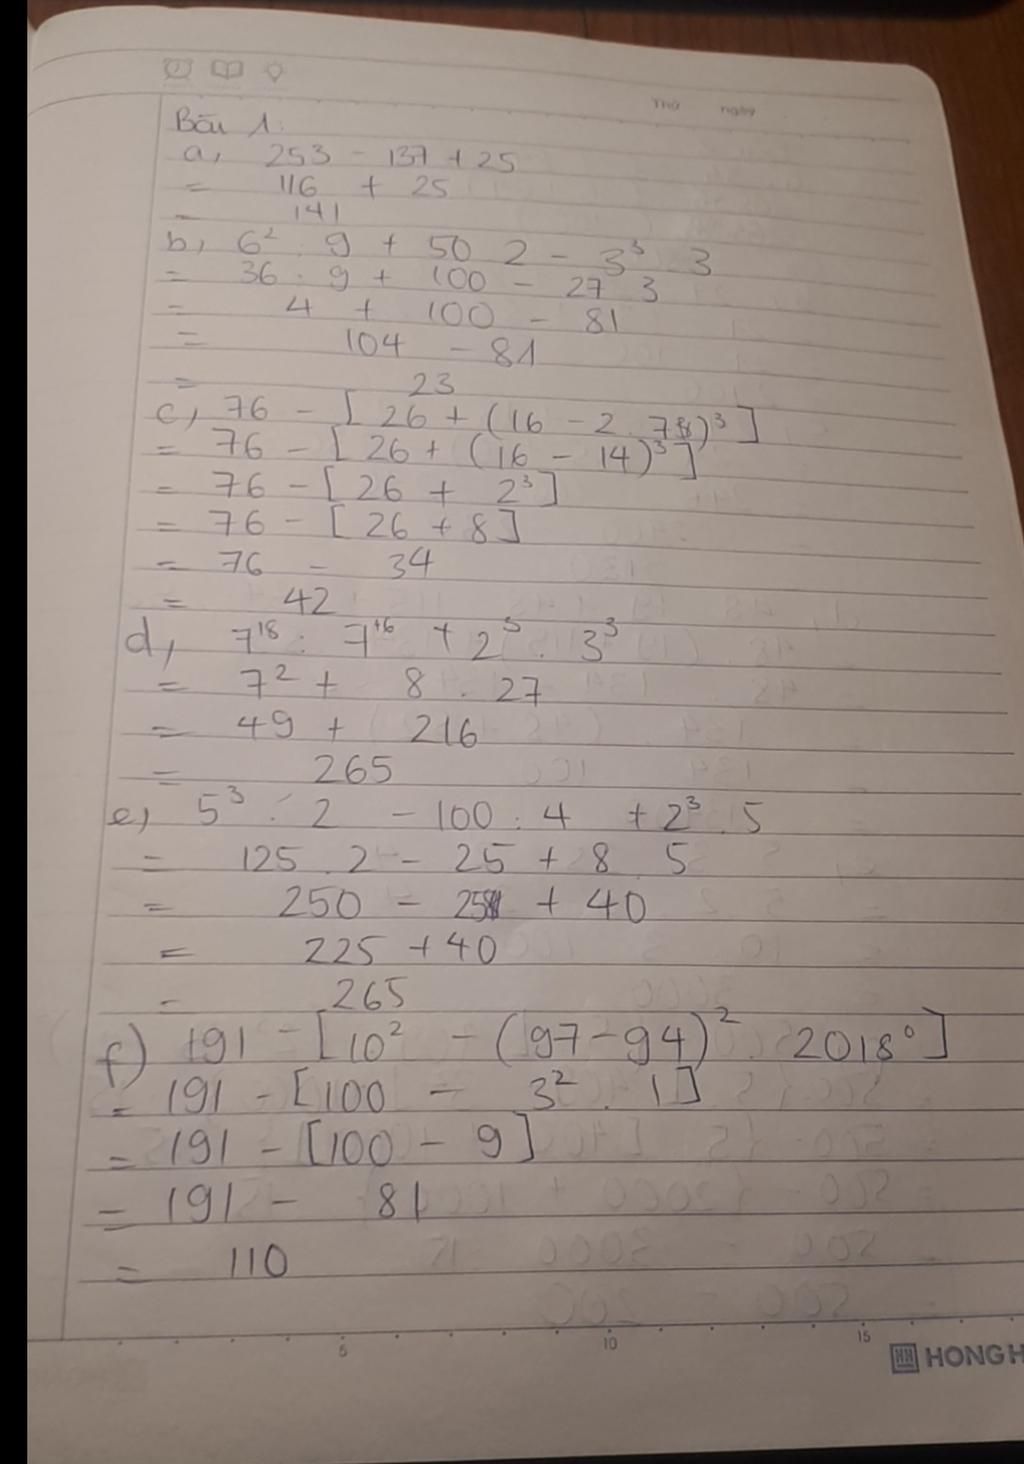 Thứ ngày
Bài 1:
a, 253 - 137 + 25
= 116 + 25
= 141
b, 6² : 9 + 50 . 2 - 3³ . 3
= 36 : 9 + 100 - 27 . 3
= 4 + 100 - 81
= 104 - 81
= 23
c, 76 - [26 + (16 - 2 . 7)³]
= 76 - [26 + (16 - 14)³]
= 76 - [26 + 2³]
= 76 - [26 + 8]
= 76 - 34
= 42
d, 7¹⁸ : 7¹⁶ + 2³ . 3³
= 7² + 8 . 27
= 49 + 216
= 265
e, 5³ . 2 - 100 : 4 + 2³ . 5
= 125 . 2 - 25 + 8 . 5
= 250 - 25 + 40
= 225 + 40
= 265
f) 191 - [10² - (97-94)² . 2018⁰]
= 191 - [100 - 3² . 1]
= 191 - [100 - 9]
= 191 - 81
= 110
5 10 15
HONG H